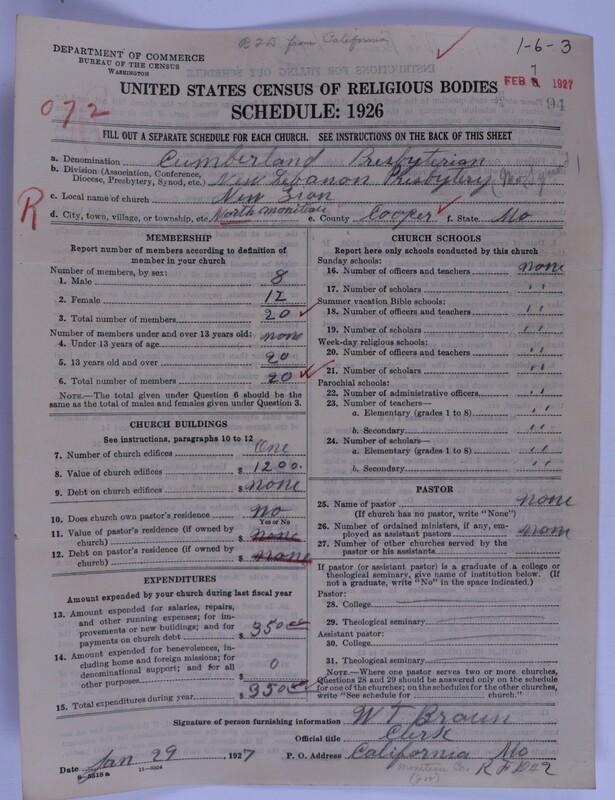 R F D from California
1-6-3
DEPARTMENT OF COMMERCE
BUREAU OF THE CENSUS
WASHINGTON
FEB 7 1927
94
072
UNITED STATES CENSUS OF RELIGIOUS BODIES
SCHEDULE: 1926
FILL OUT A SEPARATE SCHEDULE FOR EACH CHURCH. SEE INSTRUCTIONS ON THE BACK OF THIS SHEET
a. Denomination Cumberland Presbyterian
b. Division (Association, Conference, Diocese, Presbytery, Synod, etc.) New Lebanon Presbytery
c. Local name of church New Zion
R
d. City, town, village, or township, etc. North Moniteau e. County Cooper f. State Mo
MEMBERSHIP
Report number of members according to definition of member in your church
Number of members, by sex:
1. Male 8
2. Female 12
3. Total number of members 20
Number of members under and over 13 years old:
4. Under 13 years of age none
5. 13 years old and over 20
6. Total number of members 20
NOTE.—The total given under Question 6 should be the same as the total of males and females given under Question 3.
CHURCH BUILDINGS
See instructions, paragraphs 10 to 12
7. Number of church edifices One
8. Value of church edifices $ 1200.
9. Debt on church edifices $ none
10. Does church own pastor's residence no
Yes or No
11. Value of pastor's residence (if owned by church) $ none
12. Debt on pastor's residence (if owned by church) $ none
EXPENDITURES
Amount expended by your church during last fiscal year
13. Amount expended for salaries, repairs, and other running expenses; for improvements or new buildings; and for payments on church debt $ 350
14. Amount expended for benevolences, including home and foreign missions; for denominational support; and for all other purposes $ 0
15. Total expenditures during year $ 350
CHURCH SCHOOLS
Report here only schools conducted by this church
Sunday schools:
16. Number of officers and teachers none
17. Number of scholars ' '
Summer vacation Bible schools:
18. Number of officers and teachers ' '
19. Number of scholars ' '
Week-day religious schools:
20. Number of officers and teachers ' '
21. Number of scholars ' '
Parochial schools:
22. Number of administrative officers ' '
23. Number of teachers—
a. Elementary (grades 1 to 8) ' '
b. Secondary ' '
24. Number of scholars—
a. Elementary (grades 1 to 8) ' '
b. Secondary ' '
PASTOR
25. Name of pastor none
(If church has no pastor, write "None")
26. Number of ordained ministers, if any, employed as assistant pastors none
27. Number of other churches served by the pastor or his assistants
If pastor (or assistant pastor) is a graduate of a college or theological seminary, give name of institution below. (If not a graduate, write "No" in the space indicated.)
Pastor:
28. College
29. Theological seminary
Assistant pastor:
30. College
31. Theological seminary
NOTE.—Where one pastor serves two or more churches, Questions 28 and 29 should be answered only on the schedule for one of the churches; on the schedules for the other churches, write "See schedule for church."
Signature of person furnishing information W T Braun
Official title Clerk
Date Jan 29, 1927 P. O. Address California Mo
Moniteau Co. R F D #2
11-9324